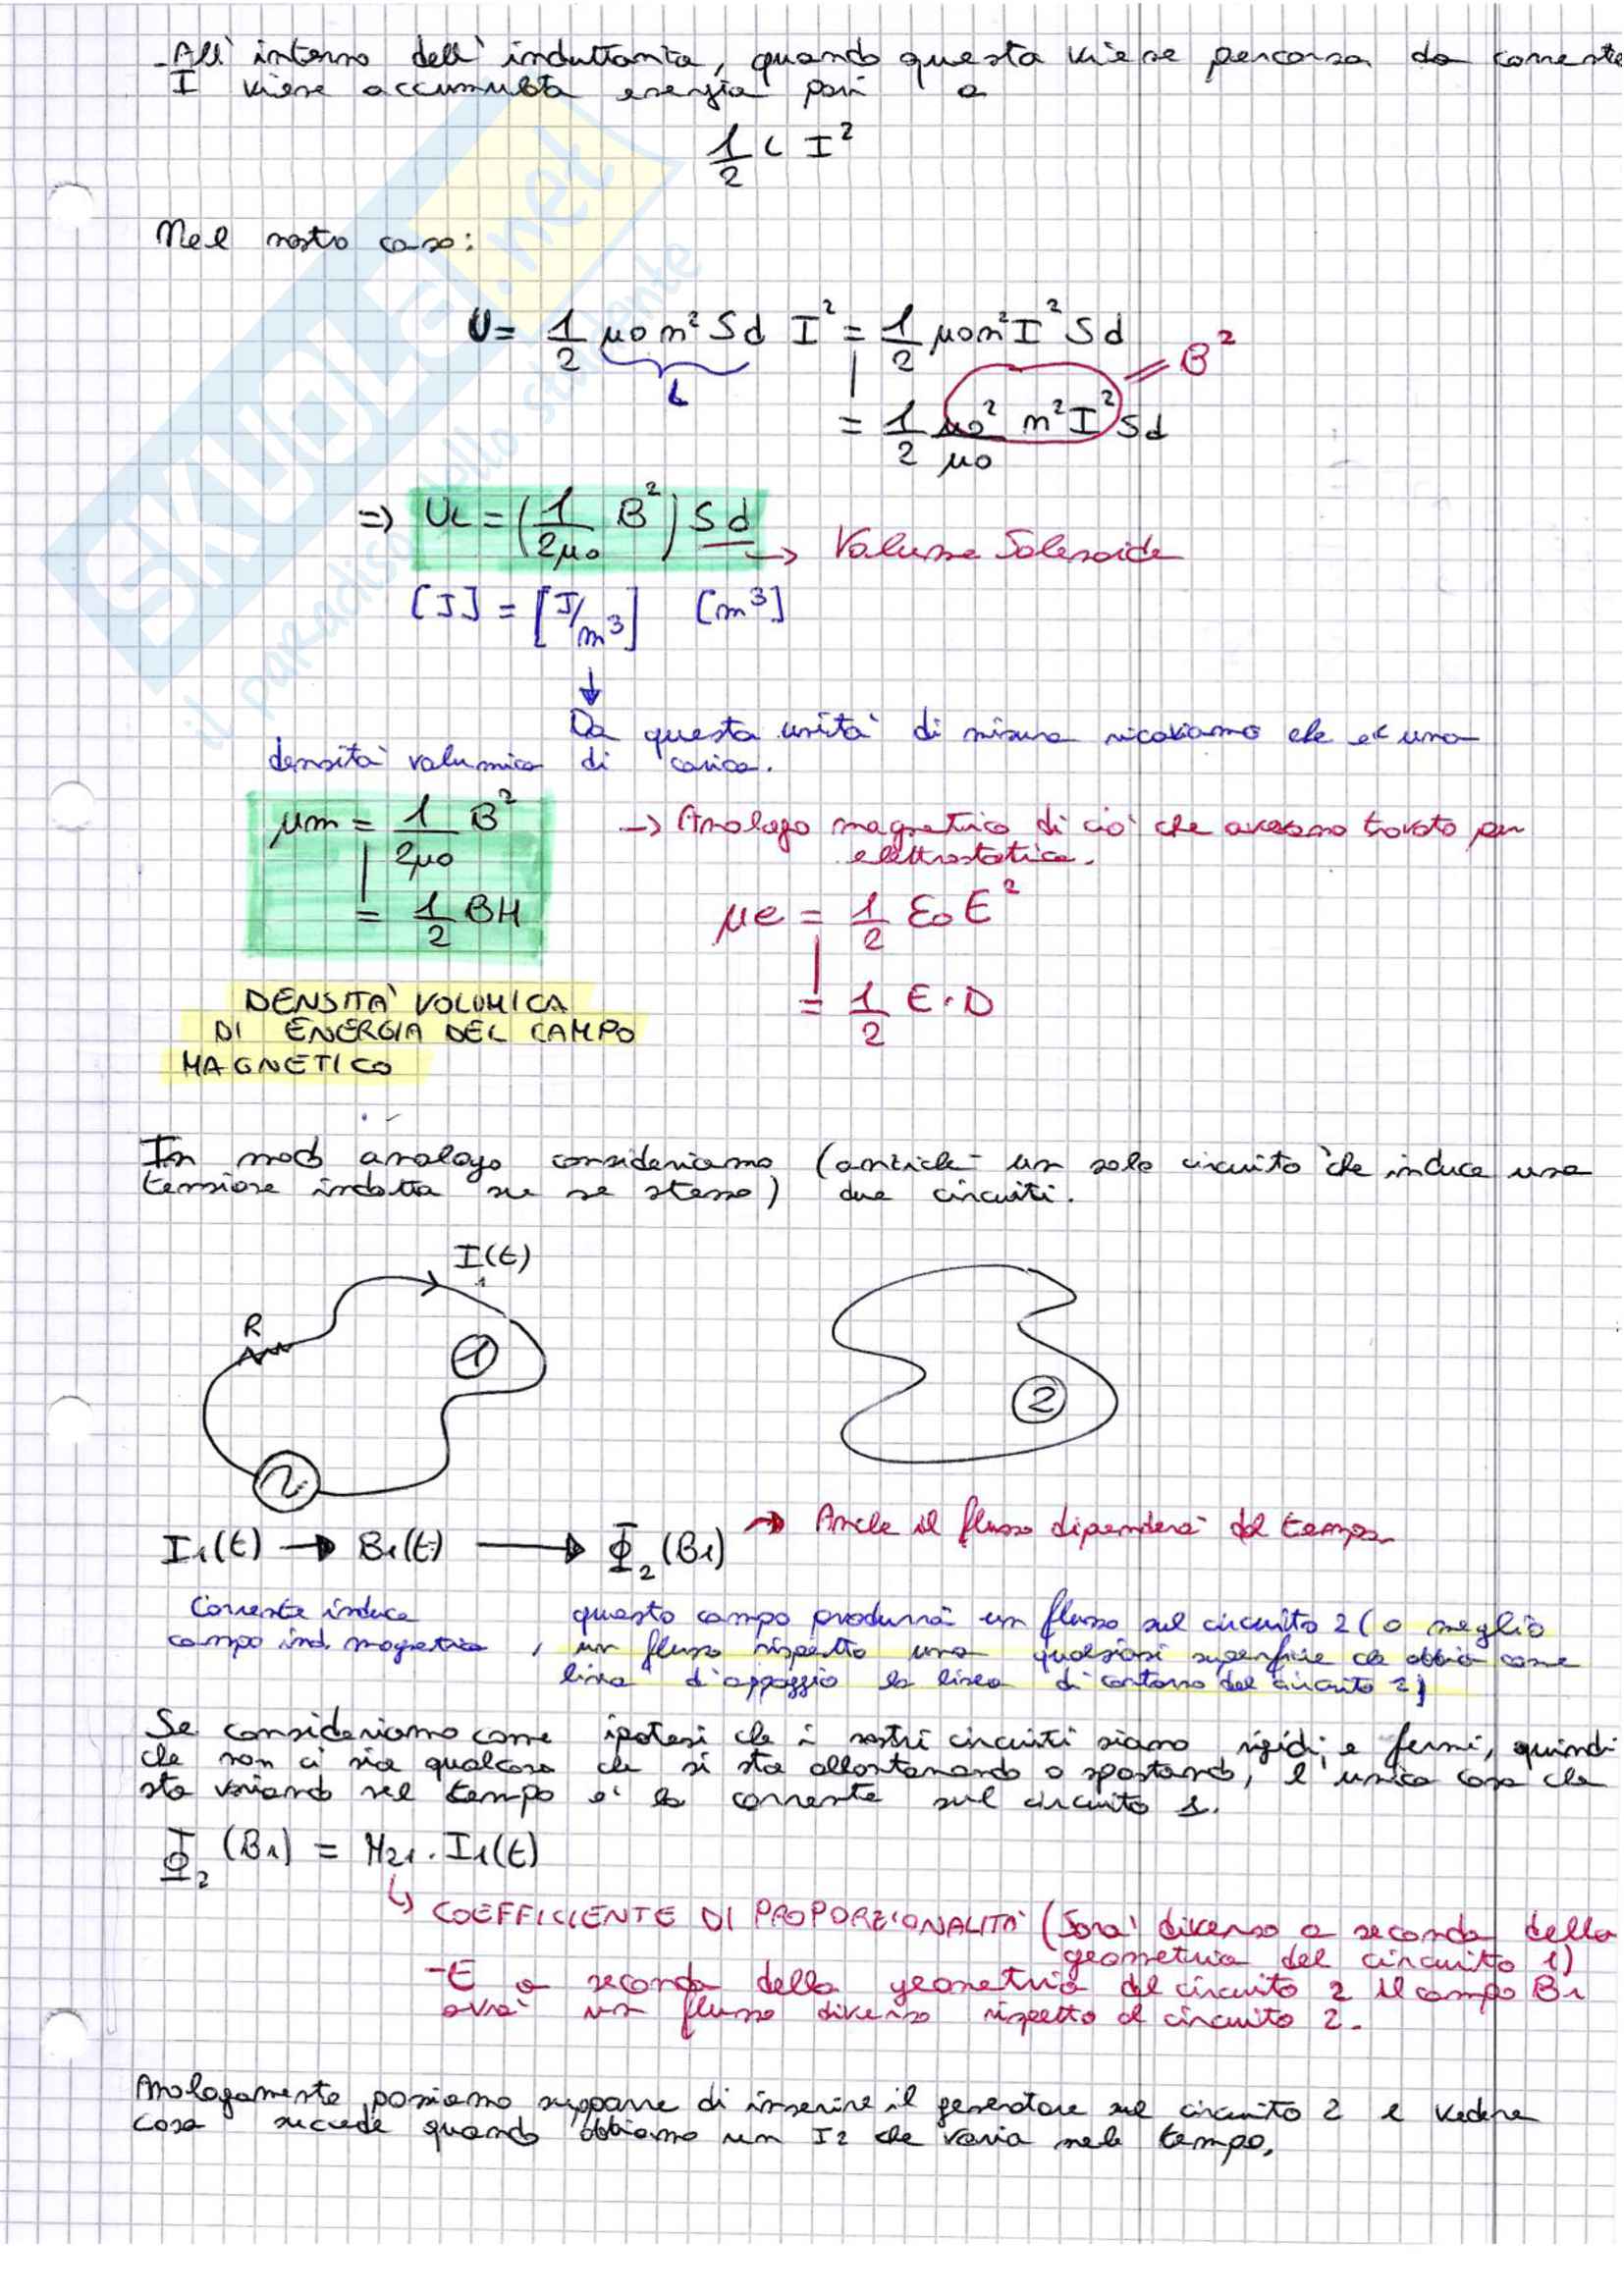 - All' interno dell' induttanza, quando questa viene percorsa da corrente
I viene accumulata energia pari a
1/2 L I²
Nel nostro caso:
U = 1/2 μ0 n² Sd I² = 1/2 μ0 n² I² Sd
L
= 1/2 μ0²/μ0 n² I² Sd = B²
=> UL = (1/2μ0 B²) Sd -> Volume Solenoide
[J] = [J/m³] [m³]
↓
Da questa unità di misura ricaviamo che è una
densità volumica di carica.
μm = 1/2μ0 B²
= 1/2 BH
-> Analogo magnetico di ciò che avevamo trovato per
elettrostatica.
μe = 1/2 ε0 E²
= 1/2 E·D
DENSITA' VOLUMICA
DI ENERGIA DEL CAMPO
MAGNETICO
In modo analogo consideriamo (anziché un solo circuito che induce una
tensione indotta su se stesso) due circuiti.
I1(t)
R
1
2
I1(t) -> B1(t) -> Φ2(B1) -> Anche il flusso dipenderà dal tempo
Corrente induce
campo ind. magnetica,
questo campo produrrà un flusso sul circuito 2 (o meglio
un flusso rispetto una qualsiasi superficie che abbia come
linea d'appoggio la linea di contorno del circuito 2)
Se consideriamo come ipotesi che i nostri circuiti siano rigidi e fermi, quindi
che non ci sia qualcosa che si sta allontanando o spostando, l'unica cosa che
sta variando nel tempo è la corrente sul circuito 1.
Φ2(B1) = M21 · I1(t)
↳ COEFFICIENTE DI PROPORZIONALITA' (Sarà diverso a seconda della
geometria del circuito 1)
- E a seconda della geometria del circuito 2 il campo B1
avrà un flusso diverso rispetto al circuito 2.
Analogamente possiamo supporre di inserire il generatore sul circuito 2 e vedere
cosa succede quando abbiamo un I2 che varia nel tempo,
SKUOLA.net
il paradiso dello studente